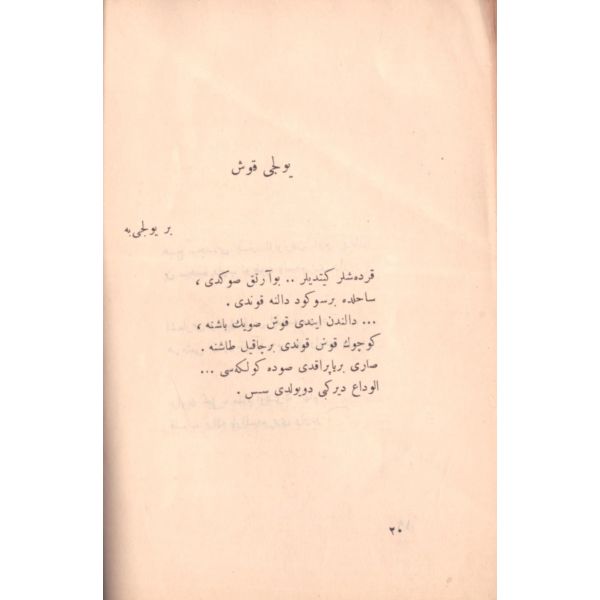 يولجى قوش
بر يولجى‌يه
قرده‌شلر كيتديلر .. بوآرتق صوكدى ،
ساحلده برسوكود دالنه قوندى .
... دالندن ايندى قوش صويك باشنه ،
كوچوك قوش قوندى برچاقيل طاشنه .
صارى برياپراقدى صوده كولكه‌سى ...
الوداع ديركبى دويولدى سس .
٢٠